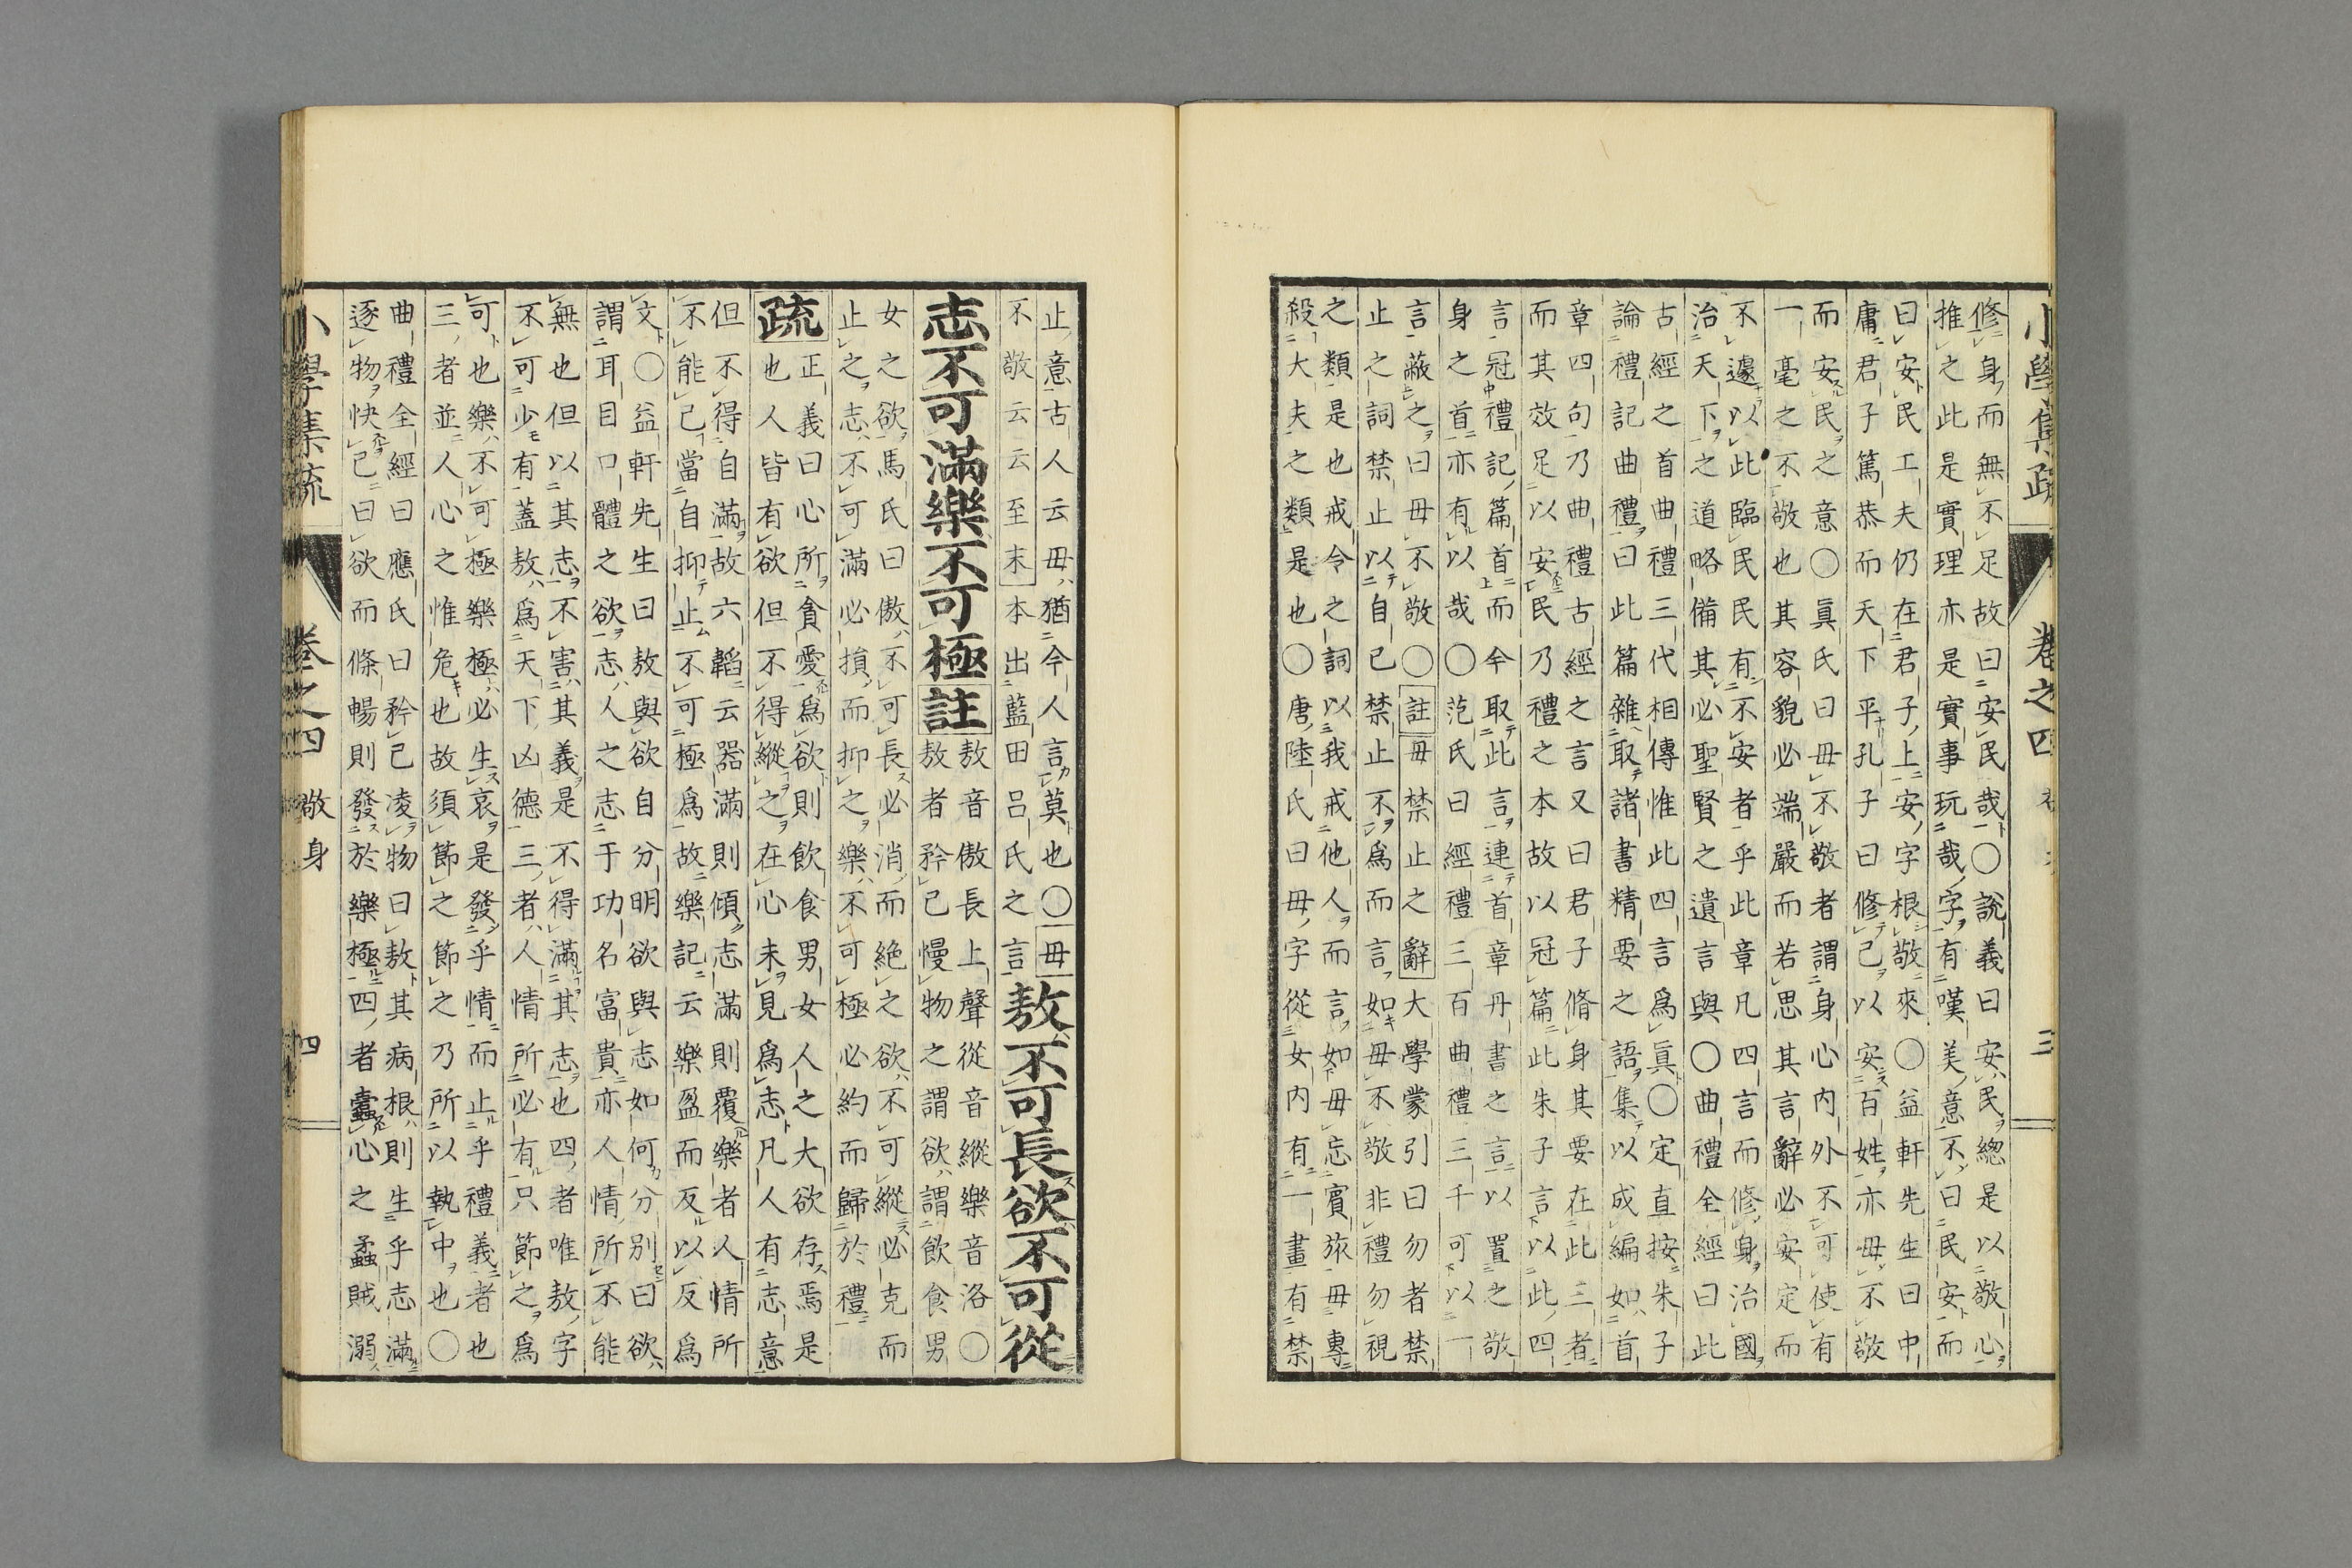 小學集疏
卷之四
三
修身而無不足故曰安民哉○說義曰安民總是以敬心
推之此是實理亦是實事玩哉字有嘆美意不曰民安而
曰安民工夫仍在君子上安字根敬來○益軒先生曰中
庸君子篤恭而天下平孔子曰修己以安百姓亦毋不敬
而安民之意○眞氏曰毋不敬者謂身心內外不可使有
一毫之不敬也其容貌必端嚴而若思其言辭必安定而
不遽以此臨民民有不安者乎此章凡四言而修身治國
治天下之道略備其必聖賢之遺言與○曲禮全經曰此
古經之首曲禮三代相傳惟此四言爲眞○定直按朱子
論禮記曲禮曰此篇雜取諸書精要之語集以成編如首
章四句乃曲禮古經之言又曰君子脩身其要在此三者
而其效足以安民乃禮之本故以冠篇此朱子言以此四
言冠禮記篇首而今取此言連首章丹書之言以置之敬
身之首亦有以哉○范氏曰經禮三百曲禮三千可以一
言蔽之曰毋不敬○註毋禁止之辭大學蒙引曰勿者禁
止之詞禁止以自已禁止不爲而言如毋不敬非禮勿視
之類是也戒令之詞以我戒他人而言如毋忘賓旅毋專
殺大夫之類是也○唐陸氏曰毋字從女內有一畫有禁
止意古人云毋猶今人言莫也○毋敖不可長欲不可從
不敬云云至末本出藍田呂氏之言
志不可滿樂不可極註敖音傲長上聲從音縱樂音洛○
敖者矜己慢物之謂欲謂飲食男
女之欲馬氏曰傲不可長必消而絕之欲不可縱必克而
止之志不可滿必損而抑之樂不可極必約而歸於禮
疏正義曰心所貪愛爲欲則飲食男女人之大欲存焉是
也人皆有欲但不得縱之在心未見爲志凡人有志意
但不得自滿故六韜云器滿則傾志滿則覆樂者人情所
不能已當自抑止不可極爲故樂記云樂盈而反以反爲
文○益軒先生曰敖與欲自分明欲與志如何分別曰欲
謂耳目口體之欲志人之志于功名富貴亦人情所不能
無也但以其志不害其義是不得滿其志也四者唯敖字
不可少有蓋敖爲天下凶德三者人情所必有只節之爲
可也樂不可極樂極必生哀是發乎情而止乎禮義者也
三者並人心之惟危也故須節之節之乃所以執中也○
曲禮全經曰應氏曰矜己凌物曰敖其病根則生乎志滿
逐物快己曰欲而條暢則發於樂極四者蠹心之蟊賊溺
小學集疏
卷之四
敬身
四